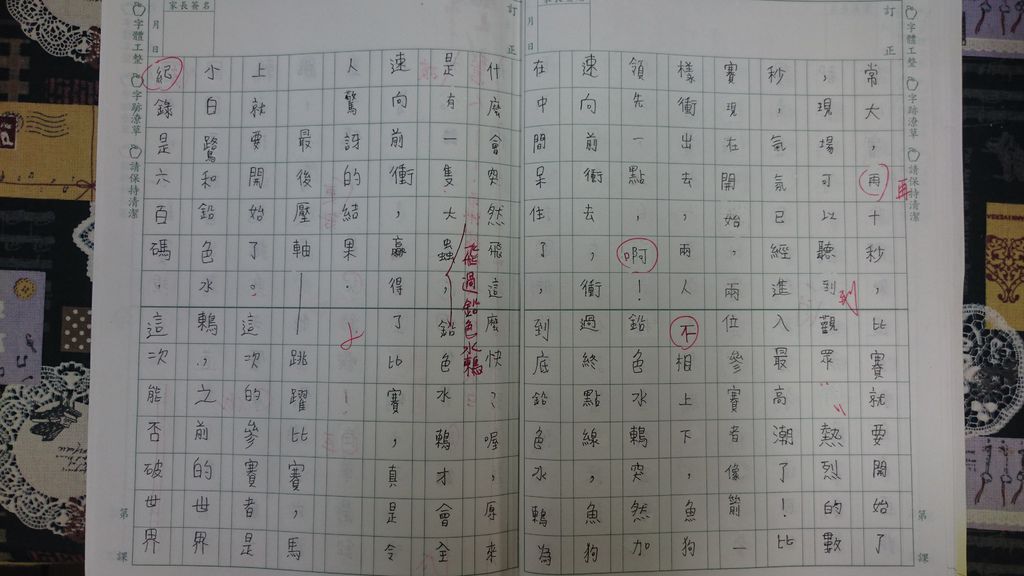 字體工整 字跡潦草 請保持清潔
訂正
月 日
家長簽名
第 課
常大，再十秒，比賽就要開始了
再
，現場可以聽到觀眾熱烈的數
到
秒，氣氛已經進入最高潮了！比
賽現在開始，兩位參賽者像箭一
樣衝出去，兩人不相上下，魚狗
領先一點啊！鉛色水鶇突然加
速向前衝去，衝過終點線，魚狗
在中間呆住了，到底鉛色水鶇為
訂正
月 日
家長簽名
什麼會突然飛這麼快？喔，原來
飛過鉛色水鶇
是有一隻大蟲，鉛色水鶇才會全
速向前衝，贏得了比賽，真是令
人驚訝的結果。
，最後壓軸——跳躍比賽，馬
上就要開始了。這次的參賽者是
小白鷺和鉛色水鶇，之前的世界
紀錄是六百碼，這次能否破世界
字體工整 字跡潦草 請保持清潔
第 課